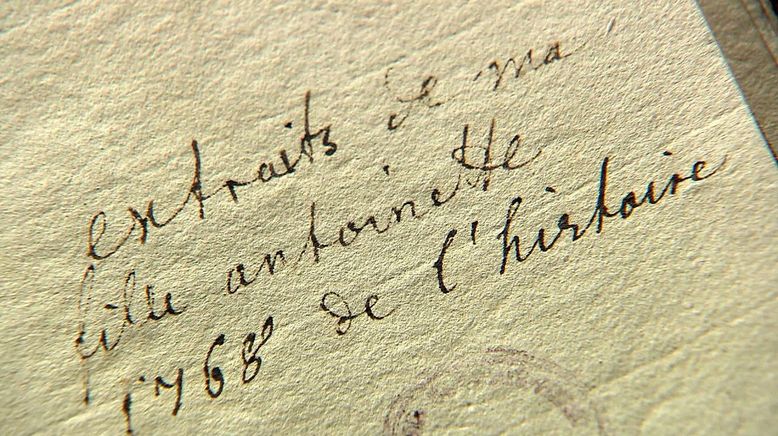 extraits de ma
fille antoinette
1768 de l'histoire